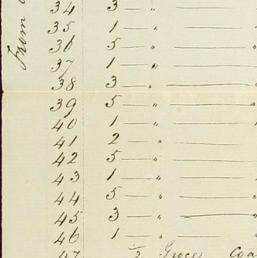 From
34 3 — " —
35 1 — " —
36 5 — " —
37 1 — " —
38 3 — " —
39 5 — " —
40 1 — " —
41 2 — " —
42 5 — " —
43 1 — " —
44 5 — " —
45 3 — " —
46 1 — " —
47 ½ Groce Coa